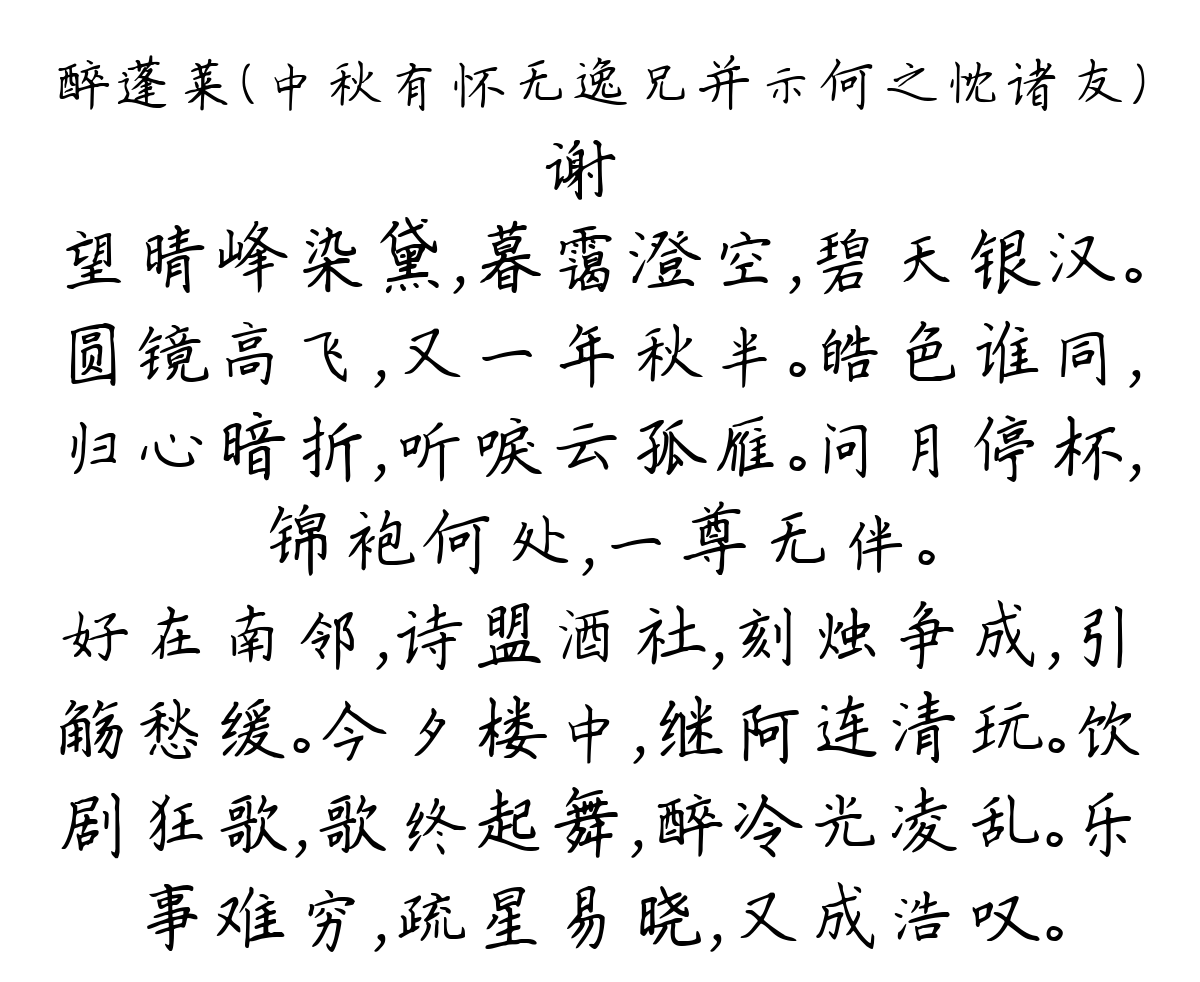 醉蓬莱(中秋有怀无逸兄并示何之忱诸友)
谢
望晴峰染黛,暮霭澄空,碧天银汉。
圆镜高飞,又一年秋半。皓色谁同,
归心暗折,听唳云孤雁。问月停杯,
锦袍何处,一尊无伴。
好在南邻,诗盟酒社,刻烛争成,引
觞愁缓。今夕楼中,继阿连清玩。饮
剧狂歌,歌终起舞,醉冷光凌乱。乐
事难穷,疏星易晓,又成浩叹。